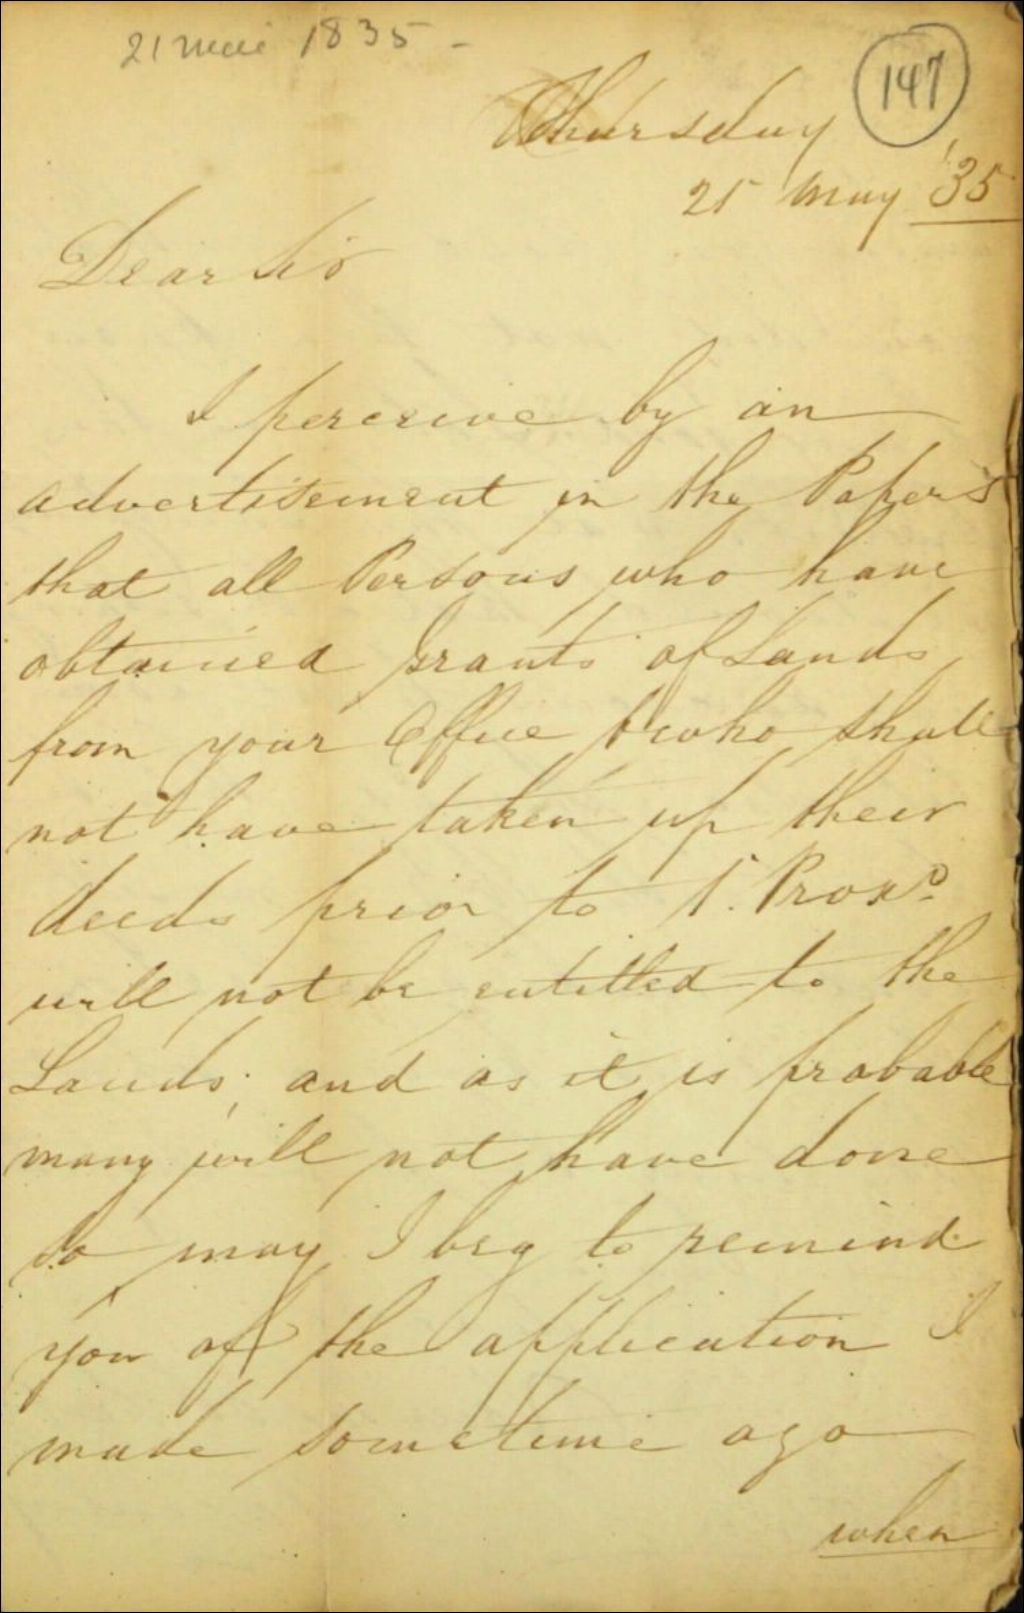 21 Mai 1835 -
147
Thursday
21 May '35
Dear Sir
I perceive by an
advertisement in the Papers
that all Persons who have
obtained Grants of Lands
from your Office & who shall
not have taken up their
deeds prior to 1. Proxo.
will not be entitled to the
Lands; and as it is probable
many will not have done
so may I beg to remind
you of the application I
made sometime ago
when